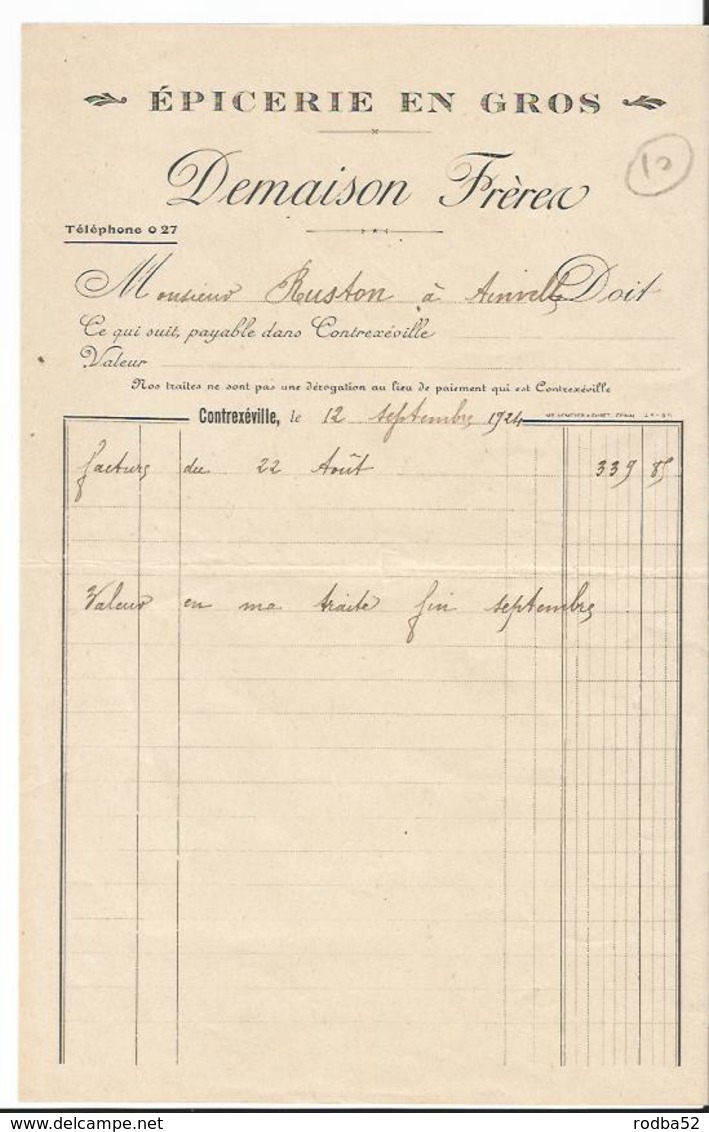 ÉPICERIE EN GROS
10
Demaison Frères
Téléphone 0 27
Monsieur Ruston à Ainvelle Doit
Ce qui suit, payable dans Contrexéville
Valeur
Nos traites ne sont pas une dérogation au lieu de paiement qui est Contrexéville
Contrexéville, le 12 septembre 1924
facture du 22 Août 339 85
Valeur en ma traite fin septembre
delcampe.net
rodba52